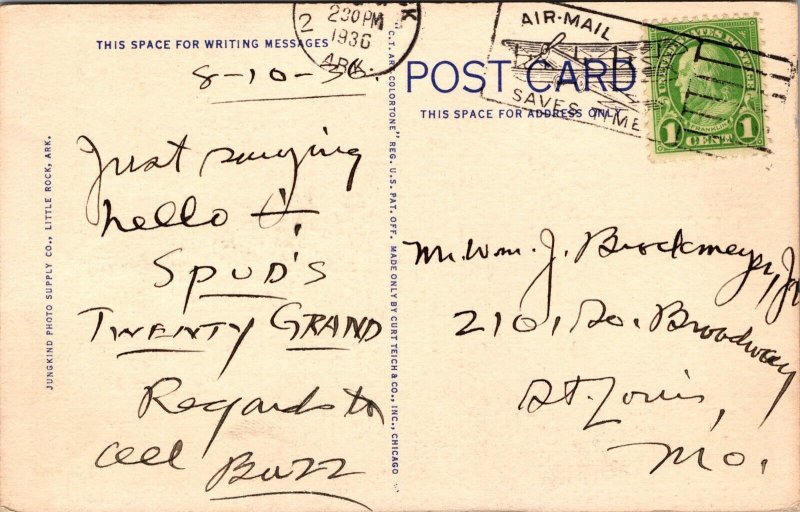 THIS SPACE FOR WRITING MESSAGES
8-10-36.
Just saying
hello to,
SPUD'S
TWENTY GRAND
Regards to
all Buzz
JUNGKIND PHOTO SUPPLY CO., LITTLE ROCK, ARK.
"C.T. ART COLORTONE" REG. U.S. PAT. OFF. MADE ONLY BY CURT TEICH & CO., INC., CHICAGO
2 30 PM
1936
ARK.
2
AIR-MAIL
SAVES TIME
UNITED STATES POSTAGE
FRANKLIN
1 CENT 1
POST CARD
THIS SPACE FOR ADDRESS ONLY
Mr. Wm. J. Brockmeyer, Jr.
2101 So. Broadway
St. Louis,
Mo.